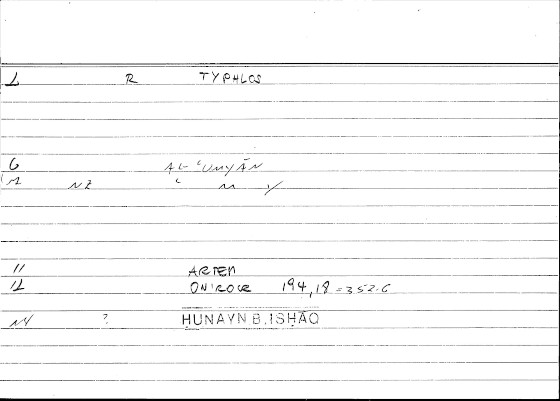 1 R TYPHLOS
6 AL-ʿUMYĀN
M NZ ʿ M Y
11 ARTEM
12 ONIROCR 194,18 = 352.6
NY ? ḤUNAYN B. ISḤĀQ